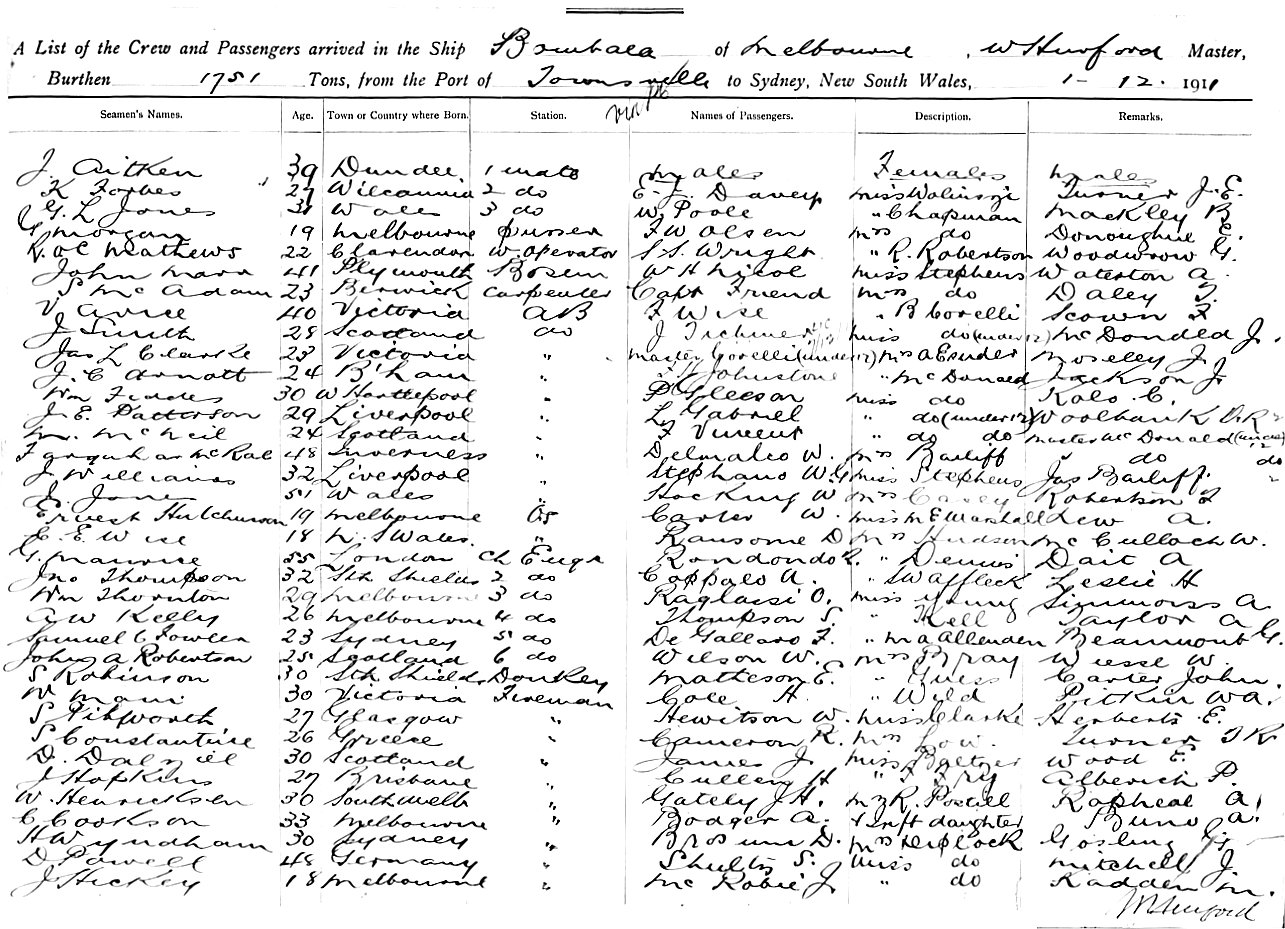 A List of the Crew and Passengers arrived in the Ship Bombala of Melbourne, W Hurford Master,
Burthen 1751 Tons, from the Port of Townsville to Sydney, New South Wales, 1-12. 1911
Seamen's Names. Age. Town or Country where Born. Station. Names of Passengers. Description. Remarks.
J. Aitken 39 Dundee 1 mate males Females males
K Forbes 27 Wilcannia 2 do E. J. Davey miss Turner J. E.
G. L Jones 31 Wales 3 do W. Poole " Chapman Mackley B
G Morgan 19 Melbourne purser F W Olsen mrs do Donoghue E.
R. oc Mathews 22 Clarendon W. operator S. S. Wright " R. Robertson Woodwrow G.
John Marr 41 Plymouth Bosun W H Nicol miss Stephens Waterton A.
S Mc Adam 23 Berwick Carpenter Capt Friend mrs do Daley T.
V 40 Victoria AB F Wise " B Corelli Scown F
J Smith 28 Scotland do J miss do (under 12) McDonald J.
Jas L Clarke 23 Victoria " Master Corelli (under 12) mrs Moseley J.
J. C Arnott 24 B'ham " Johnstone " McDonald Jackson J
Wm Fiddes 30 W Hartlepool " P Gleeson miss do Kalo C.
J. E. Patterson 29 Liverpool " L Gabriel " do (under 12) Woolbank D. R
M. McNeil 24 Scotland " F Vincent " do do Master McDonald (under 12)
Farquhar McRae 48 Inverness " Delmalco W. mrs Bailiff " do do
J Williams 32 Liverpool " Stephano W. G miss Stephens Jas Bailiff
J. Jones 51 Wales " Hocking W mrs Casey Robertson F
Ernest Hutchinson 19 Melbourne OS Carter W. miss M E Marshall Lew A.
C E Wise 18 N. S Wales. " Ransome D mrs Hudson McCulloch W.
G. Maurice 55 London Ch Engr Rondondo " Dennis Dait A
Jno Thompson 32 Sth Shields 2 do Coppalo A. " SW Affleck Leslie H
Wm Thornton 29 Melbourne 3 do Raglassi O. miss Young Simmons A.
A W Kelly 26 Melbourne 4 do Thompson S. " Kell Taylor A G
Samuel C Fowler 23 Sydney 5 do De Gallard F. " M A Allenden Beaumont G.
John A Robertson 25 Scotland 6 do Wilson W. mrs Bray Wiesse W.
S Robinson 30 Sth Shields Donkey Matheson E. " Guess Carter John.
W Main 30 Victoria Fireman Cole H. " Wild Pitkin WA.
S Pithworth 27 Glasgow " Hewitson W. miss Clarke Herberts E.
S Constantine 26 Greece " Cameron R. mrs Low. Turner T R
D. Dalziel 30 Scotland " James J miss Baltzer Wood E.
J Hopkins 27 Brisbane " Cullen H " F Fry Alberich P.
W. Henricksen 30 South Melb " Gately J H. mrs R. Postill Rapheal A.
C Cookson 33 Melbourne " Bodger A. & Inft daughter Buno A.
H Wyndham 30 Sydney " Brosum D. mrs Deplock Gosling
D Powell 48 Germany " Shultz S. miss do Mitchell J.
J Hickey 18 Melbourne " Mc Robie J " do Kadden M.
W Hurford